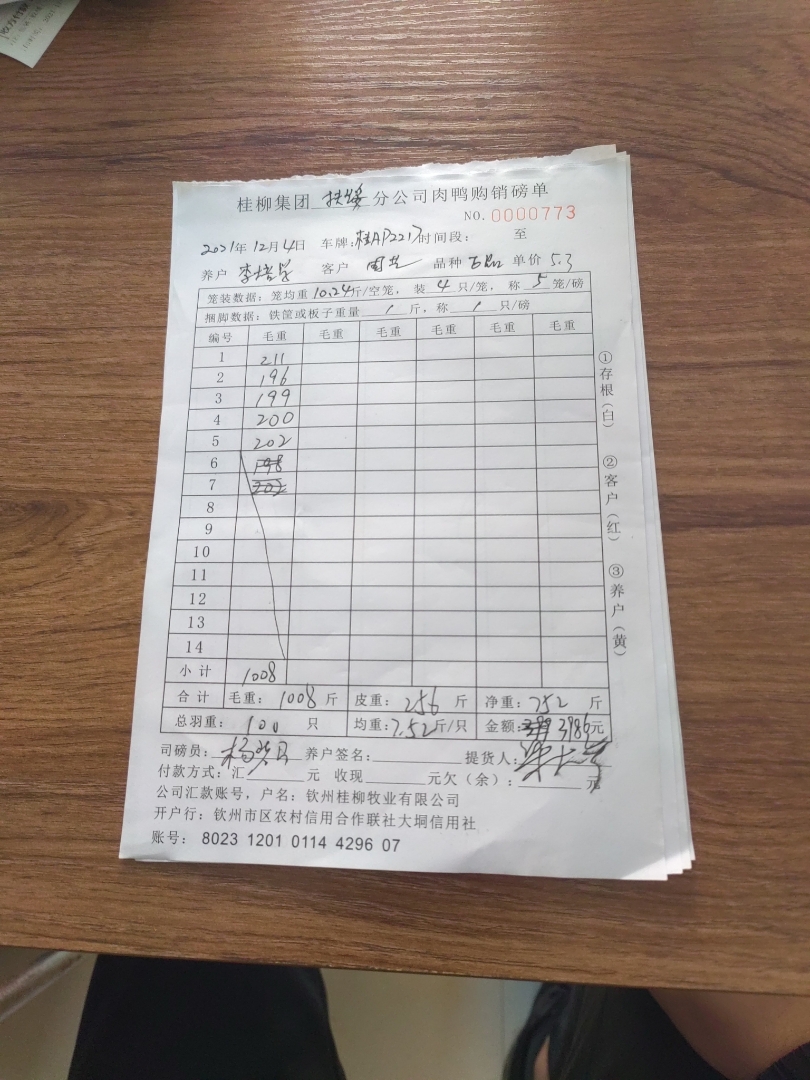 桂柳集团 扶绥 分公司肉鸭购销磅单
NO. 0000773
2021年 12月 4日 车牌: 桂AP2217 时间段: 至
养户 李培 客户 品种 单价 5.3
笼装数据: 笼均重 10.24 斤/空笼, 装 4 只/笼, 称 5 笼/磅
捆脚数据: 铁筐或板子重量 / 斤, 称 / 只/磅
编号 毛重 毛重 毛重 毛重 毛重 毛重
1 211
2 196
3 199
4 200
5 202
6 198
7 202
8
9
10
11
12
13
14
小计 1008
合计 毛重: 1008 斤 皮重: 256 斤 净重: 752 斤
总羽重: 100 只 均重: 7.52 斤/只 金额: 3986 元
司磅员: 杨 养户签名: 提货人:
付款方式: 汇 元 收现 元欠(余): 元
公司汇款账号, 户名: 钦州桂柳牧业有限公司
开户行: 钦州市区农村信用合作联社大垌信用社
账号: 8023 1201 0114 4296 07
①存根(白) ②客户(红) ③养户(黄)